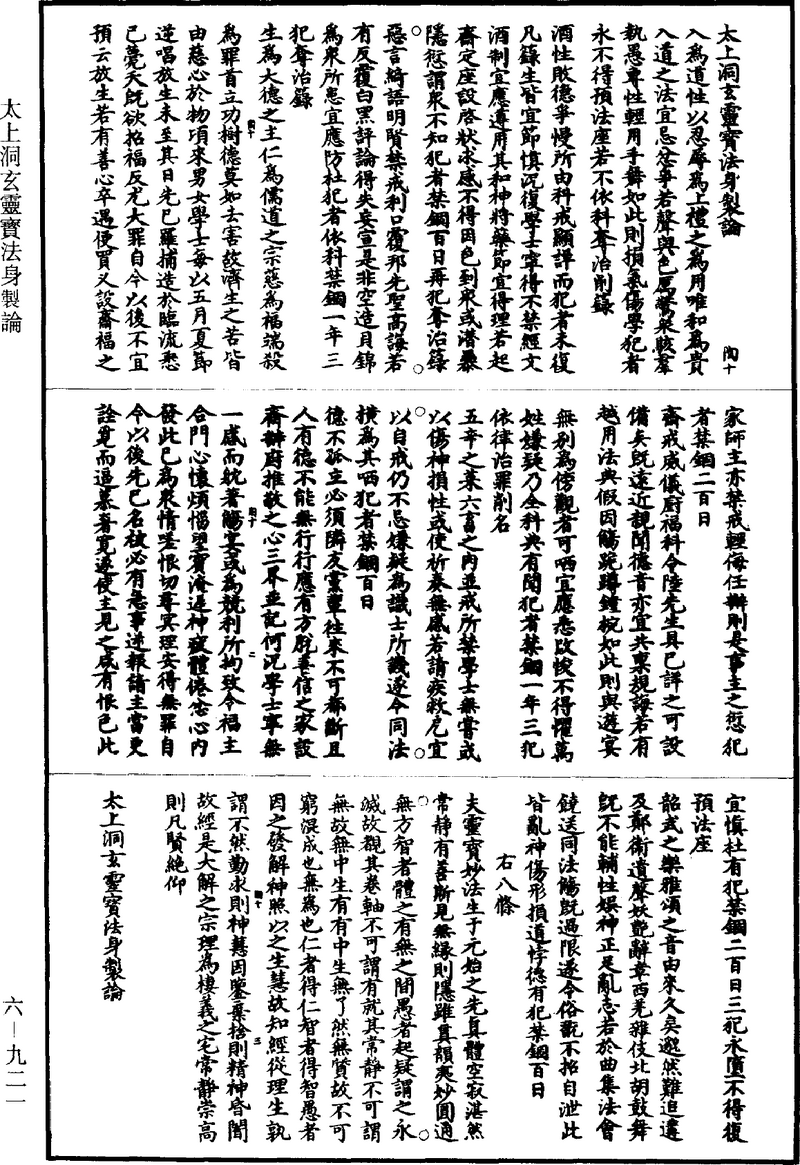 太上洞玄靈寶法身製論
六－九二一
太上洞玄靈寶法身製論　陶十
入為道性以忍辱為上禮之為用唯和為貴
入道之法宜忌忿爭若聲與色厲驚衆駭羣
執愚專性輕用手舞如此則損氣傷學犯者
永不得預法座若不依科奪治削錄
酒性敗德爭慢所由科戒顯詳而犯者未復
凡籙生皆宜節慎況復學士寧得不禁經文
酒制宜應遵用其和神將藥節宜得理若起
齋定座設啓狀求感不得因色到衆或潛暴
隱愆謂衆不知犯者禁錮百日再犯奪治籙
惡言綺語明賢禁戒利口覆邦先聖高誨若
有反覆白黑評論得失妄宣是非空造貝錦
為衆所患宜應防杜犯者依科禁錮一年三
犯奪治錄
生為大德之主仁為儒道之宗慈為福端殺
為罪首立功樹德莫如去害故濟生之苦皆
由慈心於物頃來男女學士每以五月夏節
逆唱放生未至其日先已羅捕造於臨流怨
已薨天既欲招福反尤大罪自今以後不宜
預云放生若有善心卒遇便買又設齋福之
家師主亦禁戒輕侮任辦則是事主之愆犯
者禁錮二百日
齋戒威儀廚福科令陸先生具已詳之可設
備矣既遠近親聞德音亦宜共稟規誨若有
越用法典假因觴跪蹲鍾椀如此則與遊宴
無別為傍觀者可哂宜應悉改悛不得懼萬
姓嫌疑乃全科典有聞犯者禁錮一年三犯
依律治罪削名
五辛之菜六畜之肉並戒所禁學士無嘗或
以傷神損性或使祈奏無感若請疾救厄宜
以自戒仍不忌嫌疑為識士所譏遂令同法
横為其哂犯者禁錮百日
德不孤主必須隣友黨輩往來不可都斷且
人有德不能無行行應有方脫善信之家設
齋辦廚推敬之心三界並記何況學士寧無
一感而躭著觴宴或為競利所拘致令福主
合門心懷煩惱望賓淹遲神疲體倦忿心内
發此已為衆情嗟恨切尋冥理安得無罪自
今以後先已名被必有急事逆報請主當更
詮覓而逼暮奢寬遂使主見之咸有恨色此
宜慎杜有犯禁錮二百日三犯永墮不得復
預法座
韶武之樂雅頌之音由來久矣邈然難追遘
及鄭衛遺聲妖艷辭章西羌雜伎北胡鼓舞
既不能輔性娱神正足亂志若於曲集法會
饒送同法觴既過限遂令俗歡不招自泄此
皆亂神傷形損道悖德有犯禁錮百日
右八條
夫靈寶妙法生于元始之先真體空寂湛然
常静有善斯見無緣則隱雖真韻夷妙圓通
無方智者體之有無之間愚者起疑謂之永
滅故觀其卷軸不可謂有就其常静不可謂
無故無中生有有中生無了然無質故不可
窮混成也無為也仁者得仁智者得智愚者
因之發解神照以之生慧故知經從理生孰
謂不然勤求則神慧因鑒棄捨則精神昏闇
故經是大解之宗理為棲義之宅常静崇高
則凡賢絶仰
太上洞玄靈寶法身製論